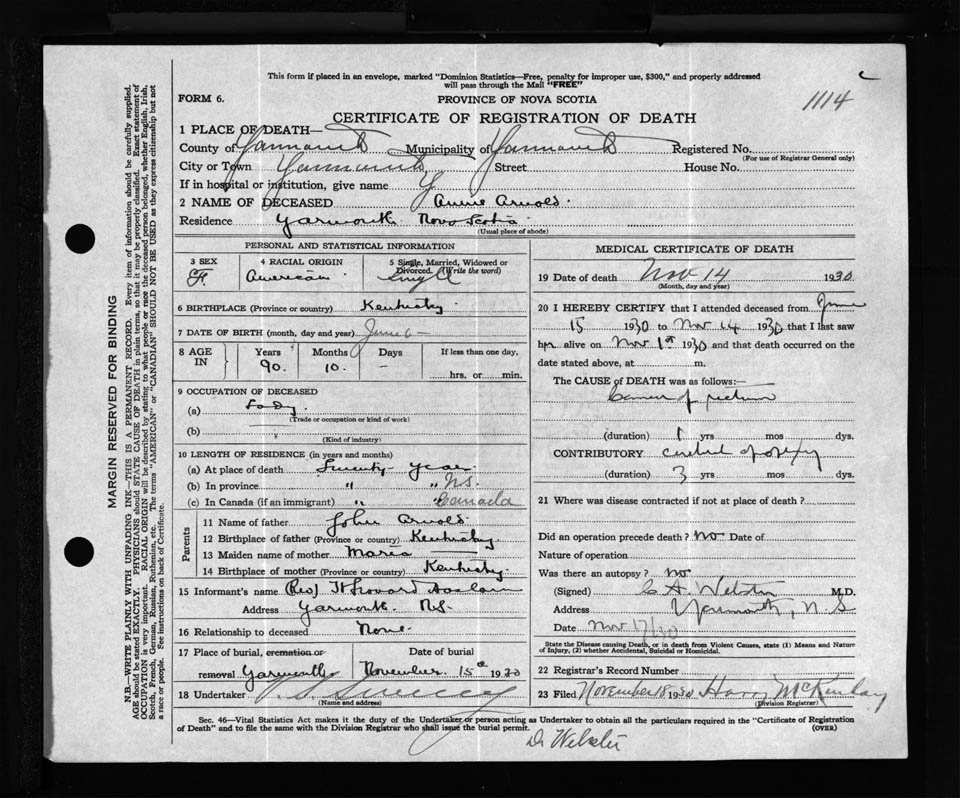 This form if placed in an envelope, marked "Dominion Statistics—Free, penalty for improper use, $300," and properly addressed
will pass through the Mail "FREE"
FORM 6.
PROVINCE OF NOVA SCOTIA
1114
CERTIFICATE OF REGISTRATION OF DEATH
1 PLACE OF DEATH—
County of Yarmouth Municipality of Yarmouth Registered No.
(For use of Registrar General only)
City or Town Yarmouth Street House No.
If in hospital or institution, give name
2 NAME OF DECEASED Annie Arnold.
Residence Yarmouth Nova Scotia
(Usual place of abode)
PERSONAL AND STATISTICAL INFORMATION
3 SEX
F.
4 RACIAL ORIGIN
American
5 Single, Married, Widowed or
Divorced. (Write the word)
Single
6 BIRTHPLACE (Province or country) Kentucky.
7 DATE OF BIRTH (month, day and year) June 6 —
8 AGE
IN
Years
90.
Months
10.
Days
—
If less than one day,
hrs. or min.
9 OCCUPATION OF DECEASED
(a) Lady.
(Trade or occupation or kind of work)
(b)
(Kind of industry)
10 LENGTH OF RESIDENCE (in years and months)
(a) At place of death Twenty years
(b) In province " " N.S.
(c) In Canada (if an immigrant) " " Canada
Parents
11 Name of father John Arnold.
12 Birthplace of father (Province or country) Kentucky.
13 Maiden name of mother Maria
14 Birthplace of mother (Province or country) Kentucky.
15 Informant's name (Rev) Howard
Address Yarmouth. N.S.
16 Relationship to deceased None.
17 Place of burial, cremation or
removal Yarmouth
Date of burial
November 15th 1930
18 Undertaker
(Name and address)
MEDICAL CERTIFICATE OF DEATH
19 Date of death Nov 14 1930
(Month, day and year)
20 I HEREBY CERTIFY that I attended deceased from June
15 1930 to Nov 14 1930 that I last saw
her alive on Nov 1st 1930 and that death occurred on the
date stated above, at m.
The CAUSE OF DEATH was as follows:—
Cancer of rectum
(duration) 1 yrs mos dys.
CONTRIBUTORY cerebral apoplexy
(duration) 3 yrs. mos. dys.
21 Where was disease contracted if not at place of death?
Did an operation precede death? No Date of
Nature of operation
Was there an autopsy? no
(Signed) C A. Webster M.D.
Address Yarmouth, N. S
Date Nov 17/30
State the Disease causing Death, or in death from Violent Causes, state (1) Means and Nature
of Injury, (2) whether Accidental, Suicidal or Homicidal.
22 Registrar's Record Number
23 Filed November 18 1930 Harry McKinlay
(Division Registrar)
Sec. 46—Vital Statistics Act makes it the duty of the Undertaker or person acting as Undertaker to obtain all the particulars required in the "Certificate of Registration
of Death" and to file the same with the Division Registrar who shall issue the burial permit.
(OVER)
Dr Webster
MARGIN RESERVED FOR BINDING
N.B.—WRITE PLAINLY WITH UNFADING INK—THIS IS A PERMANENT RECORD. Every item of information should be carefully supplied.
AGE should be stated EXACTLY. PHYSICIANS should STATE CAUSE OF DEATH in plain terms, so that it may be properly classified. Exact statement of
OCCUPATION is very important. RACIAL ORIGIN will be described by stating to what people or race the deceased person belonged, whether English, Irish,
Scotch, French, German, Russian, Ruthenian, etc. The terms "AMERICAN" or "CANADIAN" SHOULD NOT BE USED as they express citizenship but not
a race or people. See instructions on back of Certificate.